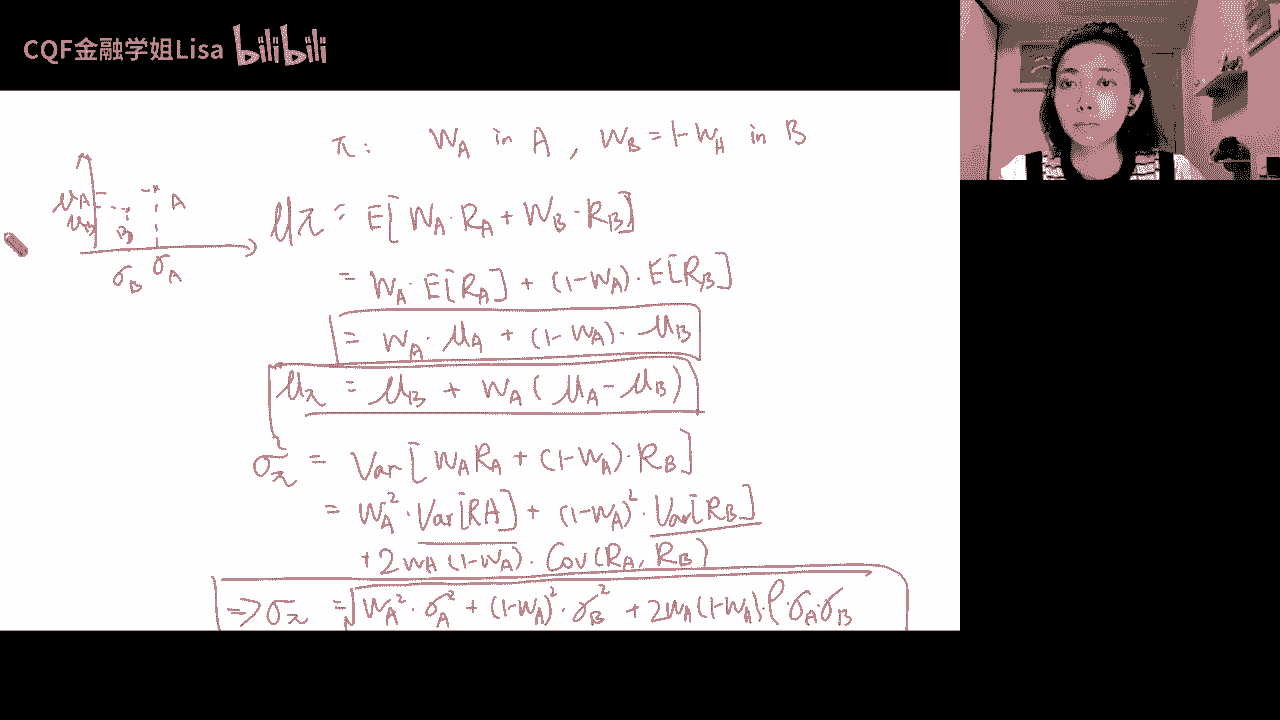 CQF金融学姐Lisa bilibili
π: W_A in A, W_B = 1-W_A in B
μ_A
μ_B
A
B
σ_B σ_A
μ_π = E[W_A·R_A + W_B·R_B]
= W_A·E[R_A] + (1-W_A)·E[R_B]
= W_A·μ_A + (1-W_A)·μ_B
μ_π = μ_B + W_A(μ_A-μ_B)
σ_π = Var[W_A R_A + (1-W_A)·R_B]
= W_A²·Var[RA] + (1-W_A)²·Var[R_B]
+2W_A(1-W_A)·Cov(R_A, R_B)
=> σ_π = √W_A²·σ_A² + (1-W_A)²·σ_B² + 2W_A(1-W_A)·ρ·σ_A·σ_B